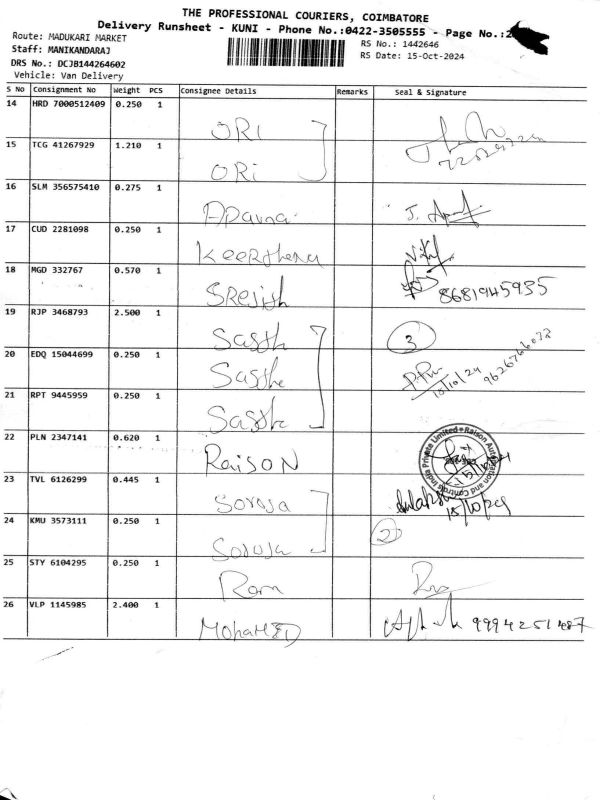 THE PROFESSIONAL COURIERS, COIMBATORE
Delivery Runsheet - KUNI - Phone No.:0422-3505555 - Page No.:2
Route: MADUKARI MARKET
Staff: MANIKANDARAJ
DRS No.: DCJB144264602
Vehicle: Van Delivery
RS No.: 1442646
RS Date: 15-Oct-2024
S No Consignment No Weight PCS Consignee Details Remarks Seal & Signature
14 HRD 7000512409 0.250 1 ORI
15 TCG 41267929 1.210 1 ORI
16 SLM 356575410 0.275 1 Aparna
17 CUD 2281098 0.250 1 Keerthena
18 MGD 332767 0.570 1 Sresish 8681945935
19 RJP 3468793 2.500 1 Sasth 3
20 EDQ 15044699 0.250 1 Sasthe 15/10/24 9626766072
21 RPT 9445959 0.250 1 Sasth
22 PLN 2347141 0.620 1 RaisoN
Raison Automation and Controls India Private Limited
23 TVL 6126299 0.445 1 Soroja
24 KMU 3573111 0.250 1 Soroja 2
25 STY 6104295 0.250 1 Ram
26 VLP 1145985 2.400 1 MOhaMED 9994251487